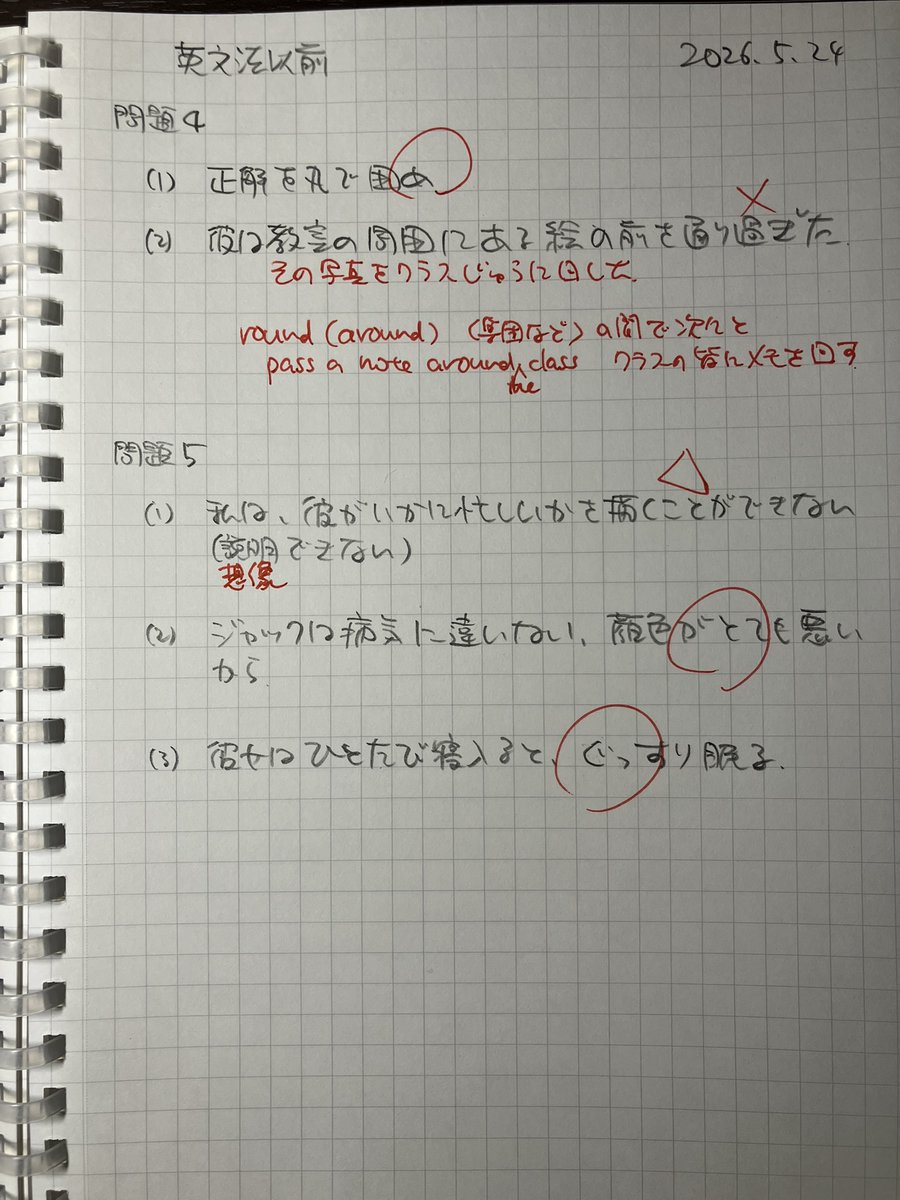 英文法以前 2026.5.24
問題4
(1) 正解を丸で囲め
(2) 彼は教室の周囲にある絵の前を通り過ぎた.
その写真をクラスじゅうに回した.
round (around) (集団など)の間で次々と
pass a note around the class クラスの皆にメモを回す
問題5
(1) 私は、彼がいかに忙しいかを描くことができない
(説明できない)
想像
(2) ジャックは病気に違いない、顔色がとても悪い
から.
(3) 彼女はひとたび寝入ると、ぐっすり眠る.